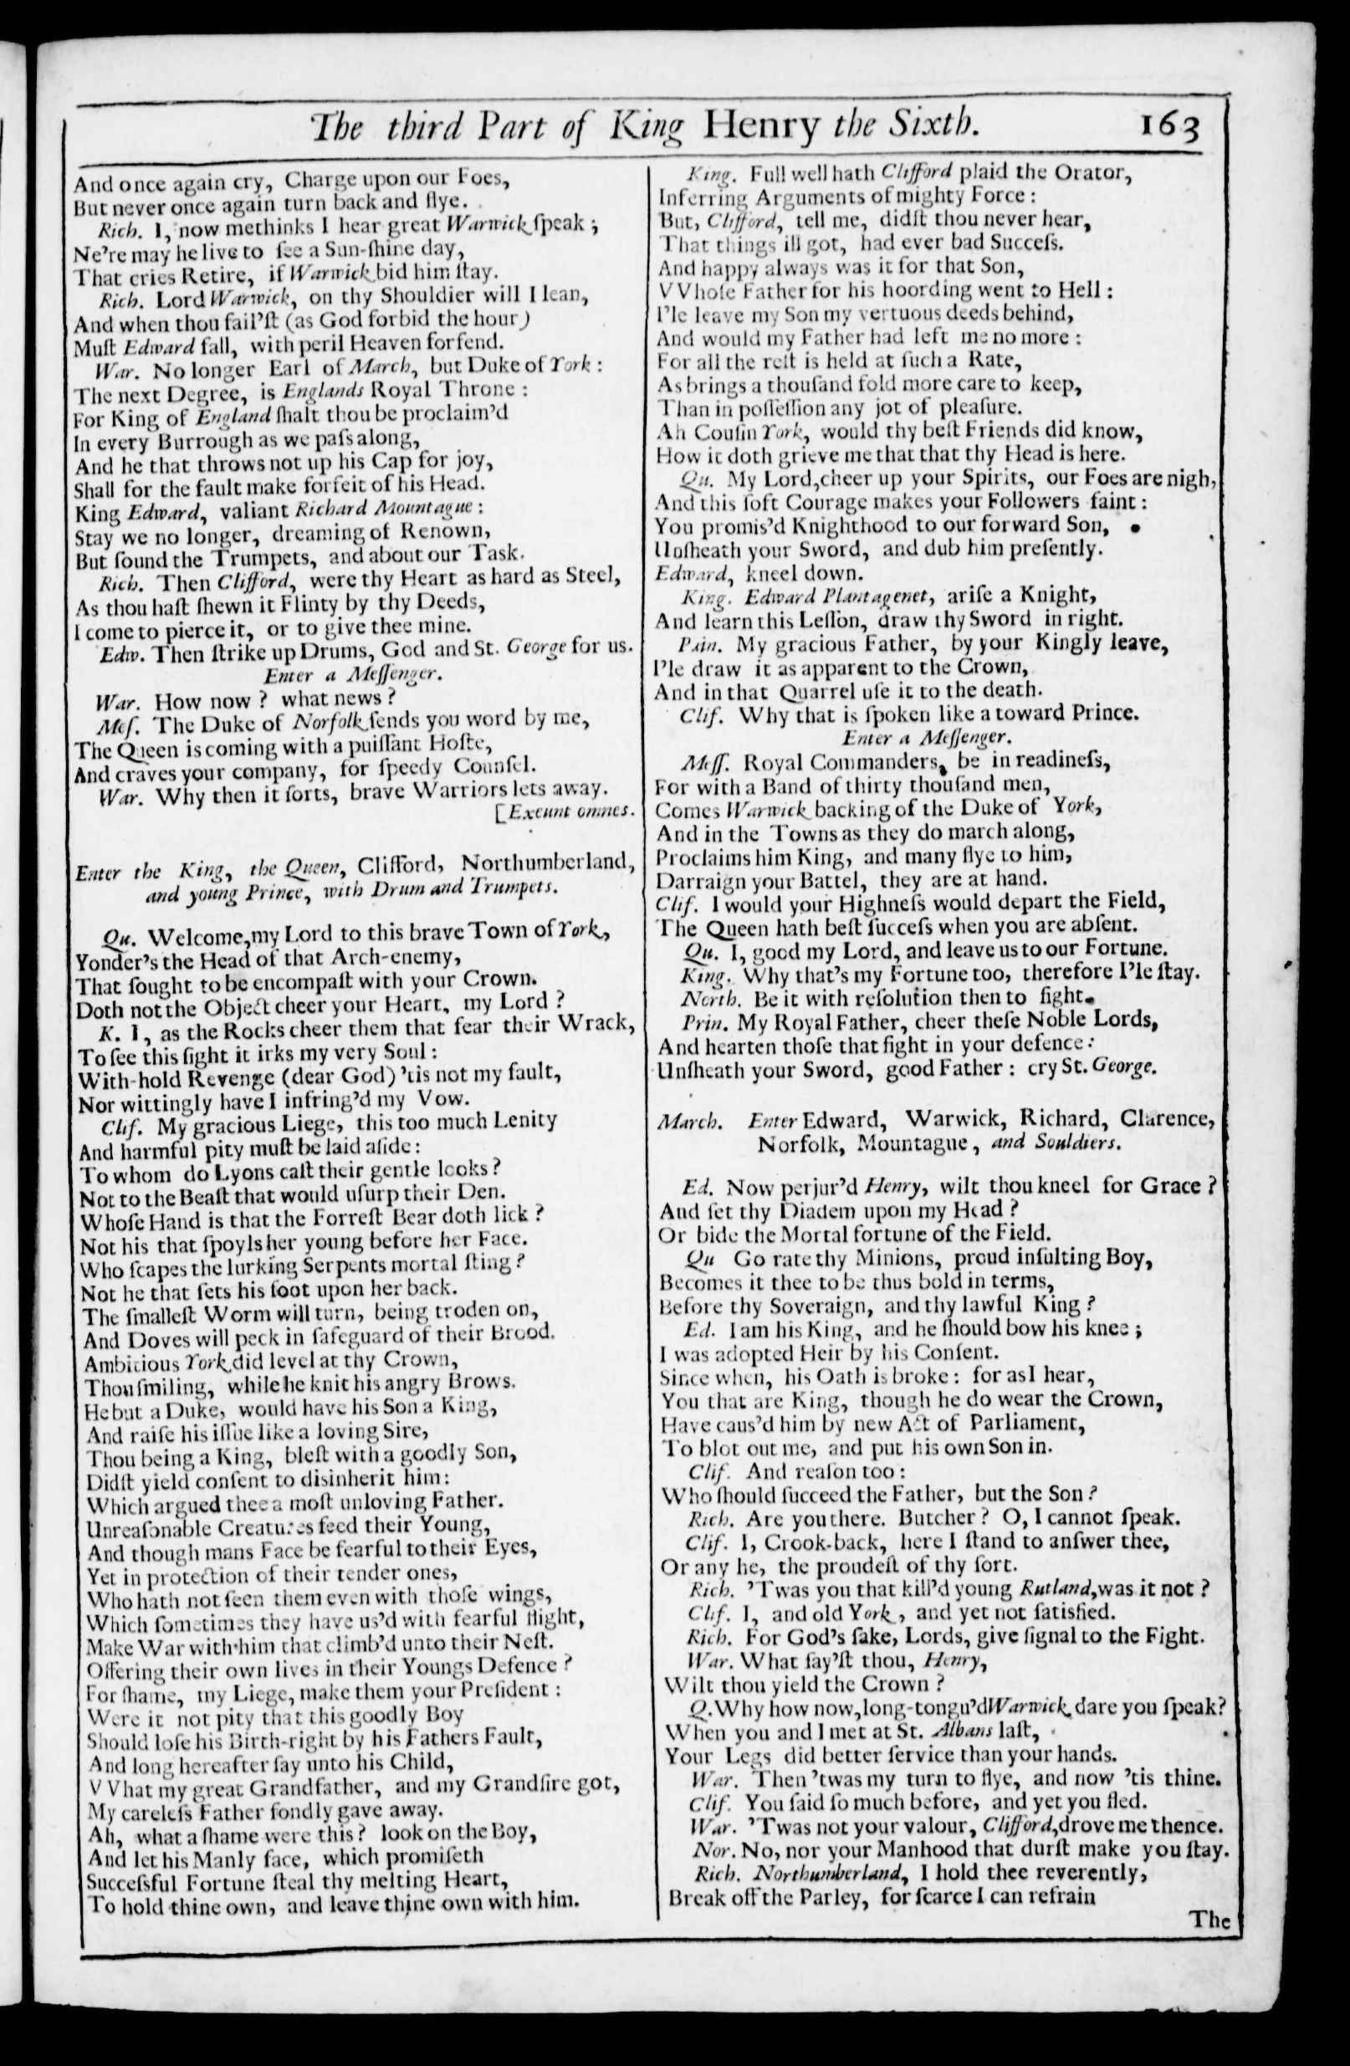 The third Part of King Henry the Sixth. 163
And once again cry, Charge upon our Foes,
But never once again turn back and flye.
Rich. I, now methinks I hear great Warwick ſpeak ;
Ne're may he live to ſee a Sun-ſhine day,
That cries Retire, if Warwick bid him ſtay.
Rich. Lord Warwick, on thy Shouldier will I lean,
And when thou fail'ſt (as God forbid the hour)
Muſt Edward fall, with peril Heaven forfend.
War. No longer Earl of March, but Duke of York :
The next Degree, is Englands Royal Throne :
For King of England ſhalt thou be proclaim'd
In every Burrough as we paſs along,
And he that throws not up his Cap for joy,
Shall for the fault make forfeit of his Head.
King Edward, valiant Richard Mountague :
Stay we no longer, dreaming of Renown,
But ſound the Trumpets, and about our Task.
Rich. Then Clifford, were thy Heart as hard as Steel,
As thou haſt ſhewn it Flinty by thy Deeds,
I come to pierce it, or to give thee mine.
Edw. Then ſtrike up Drums, God and St. George for us.
Enter a Meſſenger.
War. How now ? what news ?
Meſ. The Duke of Norfolk ſends you word by me,
The Queen is coming with a puiſſant Hoſte,
And craves your company, for ſpeedy Counſel.
War. Why then it ſorts, brave Warriors lets away.
[Exeunt omnes.
Enter the King, the Queen, Clifford, Northumberland,
and young Prince, with Drum and Trumpets.
Qu. Welcome, my Lord to this brave Town of York,
Yonder's the Head of that Arch-enemy,
That ſought to be encompaſt with your Crown.
Doth not the Object cheer your Heart, my Lord ?
K. I, as the Rocks cheer them that fear their Wrack,
To ſee this ſight it irks my very Soul :
With-hold Revenge (dear God) 'tis not my fault,
Nor wittingly have I infring'd my Vow.
Clif. My gracious Liege, this too much Lenity
And harmful pity muſt be laid aſide :
To whom do Lyons caſt their gentle looks ?
Not to the Beaſt that would uſurp their Den.
Whoſe Hand is that the Forreſt Bear doth lick ?
Not his that ſpoyls her young before her Face.
Who ſcapes the lurking Serpents mortal ſting ?
Not he that ſets his foot upon her back.
The ſmalleſt Worm will turn, being troden on,
And Doves will peck in ſafeguard of their Brood.
Ambitious York did level at thy Crown,
Thou ſmiling, while he knit his angry Brows.
He but a Duke, would have his Son a King,
And raiſe his iſſue like a loving Sire,
Thou being a King, bleſt with a goodly Son,
Didſt yield conſent to disinherit him :
Which argued thee a moſt unloving Father.
Unreaſonable Creatures feed their Young,
And though mans Face be fearful to their Eyes,
Yet in protection of their tender ones,
Who hath not ſeen them even with thoſe wings,
Which ſometimes they have us'd with fearful flight,
Make War with him that climb'd unto their Neſt.
Offering their own lives in their Youngs Defence ?
For ſhame, my Liege, make them your Preſident :
Were it not pity that this goodly Boy
Should loſe his Birth-right by his Fathers Fault,
And long hereafter ſay unto his Child,
VVhat my great Grandfather, and my Grandſire got,
My careleſs Father fondly gave away.
Ah, what a ſhame were this ? look on the Boy,
And let his Manly face, which promiſeth
Succeſsful Fortune ſteal thy melting Heart,
To hold thine own, and leave thine own with him.
King. Full well hath Clifford plaid the Orator,
Inferring Arguments of mighty Force :
But, Clifford, tell me, didſt thou never hear,
That things ill got, had ever bad Succeſs.
And happy always was it for that Son,
VVhoſe Father for his hoording went to Hell :
I'le leave my Son my vertuous deeds behind,
And would my Father had left me no more :
For all the reſt is held at ſuch a Rate,
As brings a thouſand fold more care to keep,
Than in poſſeſſion any jot of pleaſure.
Ah Couſin York, would thy beſt Friends did know,
How it doth grieve me that that thy Head is here.
Qu. My Lord, cheer up your Spirits, our Foes are nigh,
And this ſoft Courage makes your Followers faint :
You promis'd Knighthood to our forward Son,
Unſheath your Sword, and dub him preſently.
Edward, kneel down.
King. Edward Plantagenet, ariſe a Knight,
And learn this Leſſon, draw thy Sword in right.
Prin. My gracious Father, by your Kingly leave,
I'le draw it as apparent to the Crown,
And in that Quarrel uſe it to the death.
Clif. Why that is ſpoken like a toward Prince.
Enter a Meſſenger.
Meſſ. Royal Commanders, be in readineſs,
For with a Band of thirty thouſand men,
Comes Warwick backing of the Duke of York,
And in the Towns as they do march along,
Proclaims him King, and many flye to him,
Darraign your Battel, they are at hand.
Clif. I would your Highneſs would depart the Field,
The Queen hath beſt ſucceſs when you are abſent.
Qu. I, good my Lord, and leave us to our Fortune.
King. Why that's my Fortune too, therefore I'le ſtay.
North. Be it with reſolution then to fight.
Prin. My Royal Father, cheer theſe Noble Lords,
And hearten thoſe that fight in your defence :
Unſheath your Sword, good Father : cry St. George.
March. Enter Edward, Warwick, Richard, Clarence,
Norfolk, Mountague, and Souldiers.
Ed. Now perjur'd Henry, wilt thou kneel for Grace ?
And ſet thy Diadem upon my Head ?
Or bide the Mortal fortune of the Field.
Qu Go rate thy Minions, proud inſulting Boy,
Becomes it thee to be thus bold in terms,
Before thy Soveraign, and thy lawful King ?
Ed. I am his King, and he ſhould bow his knee ;
I was adopted Heir by his Conſent.
Since when, his Oath is broke : for as I hear,
You that are King, though he do wear the Crown,
Have caus'd him by new Act of Parliament,
To blot out me, and put his own Son in.
Clif. And reaſon too :
Who ſhould ſucceed the Father, but the Son ?
Rich. Are you there. Butcher ? O, I cannot ſpeak.
Clif. I, Crook-back, here I ſtand to anſwer thee,
Or any he, the proudeſt of thy ſort.
Rich. 'Twas you that kill'd young Rutland, was it not ?
Clif. I, and old York, and yet not ſatisfied.
Rich. For God's ſake, Lords, give ſignal to the Fight.
War. What ſay'ſt thou, Henry,
Wilt thou yield the Crown ?
Q. Why how now, long-tongu'd Warwick, dare you ſpeak?
When you and I met at St. Albans laſt,
Your Legs did better ſervice than your hands.
War. Then 'twas my turn to flye, and now 'tis thine.
Clif. You ſaid ſo much before, and yet you fled.
War. 'Twas not your valour, Clifford, drove me thence.
Nor. No, nor your Manhood that durſt make you ſtay.
Rich. Northumberland, I hold thee reverently,
Break off the Parley, for ſcarce I can refrain
The